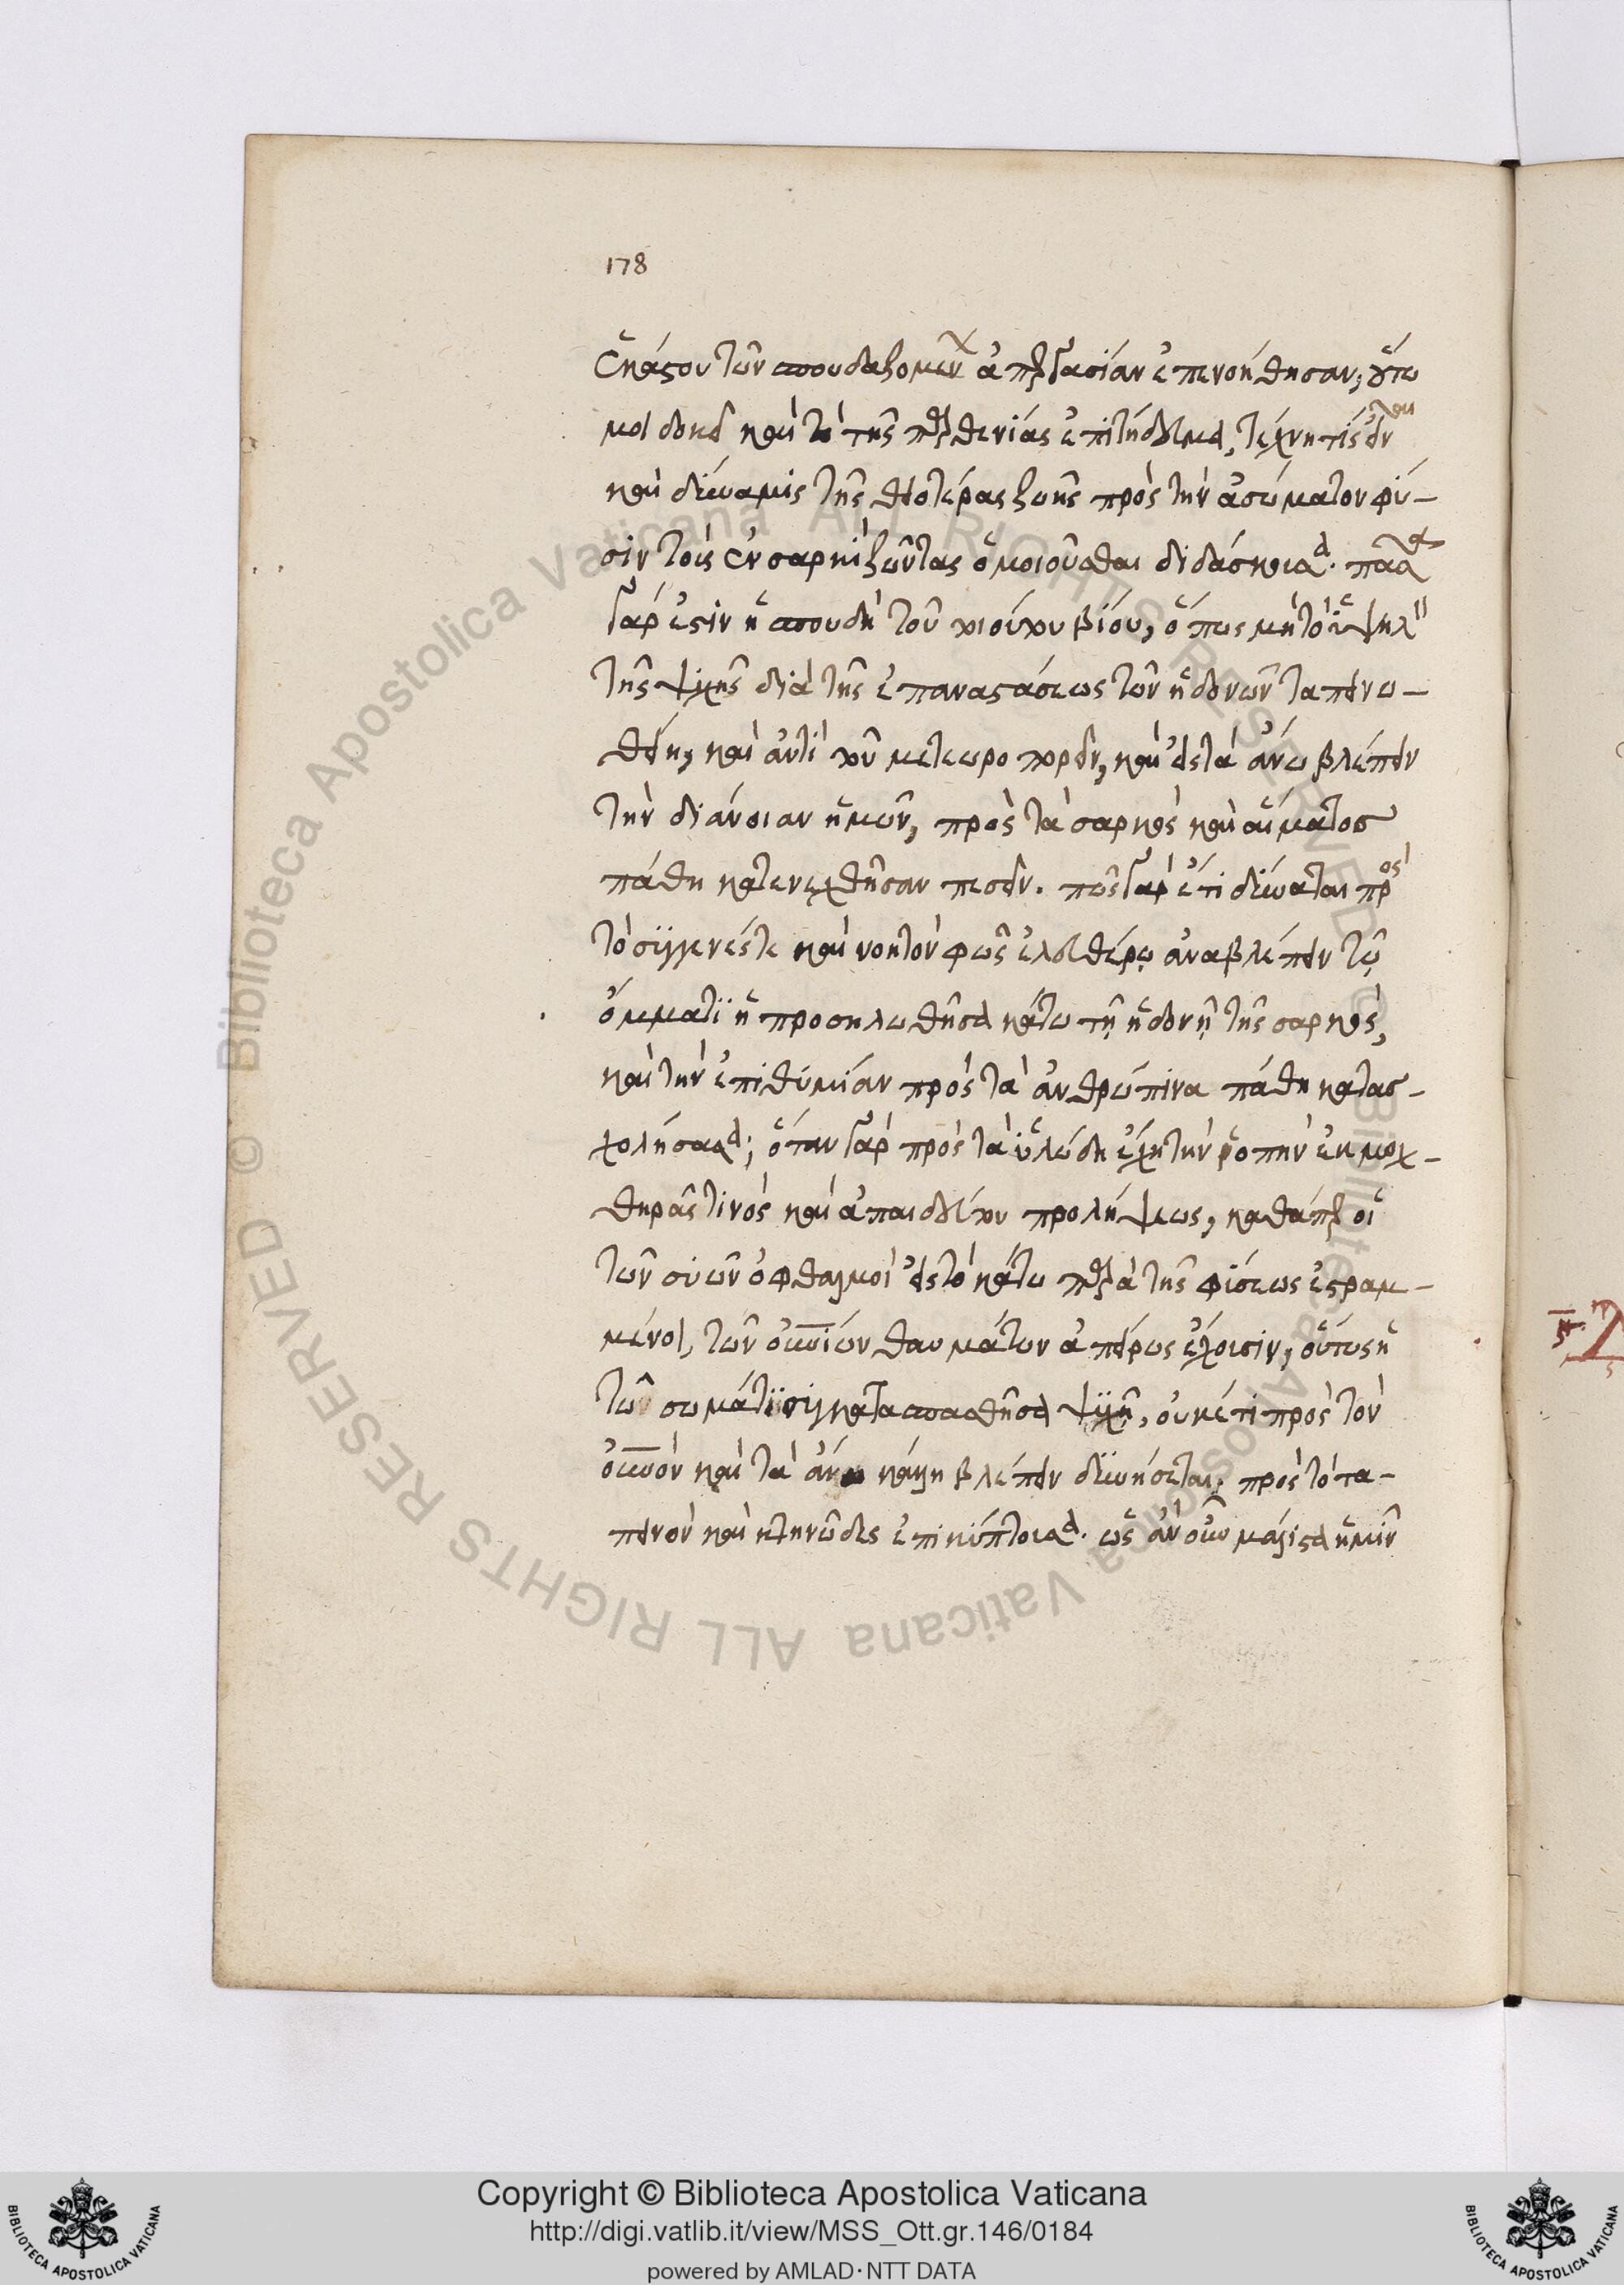 178
ἑκάστου τῶν σπουδαζομένων ἀπεργασίαν ἐπενοήθησαν, οὕτω
μοι δοκεῖ καὶ τὸ τῆς παρθενίας ἐπιτήδευμα, τέχνη τίς εἶναι
καὶ δύναμις τῆς θειοτέρας ζωῆς πρὸς τὴν ἀσώματον φύ-
σιν τοὺς ἐν σαρκὶ ζῶντας ὁμοιοῦσθαι διδάσκουσα. πᾶσα
γάρ ἐστιν ἡ σπουδὴ τοῦ τοιούτου βίου, ὅπως μὴ τὸ ὑψηλὸν
τῆς ψυχῆς διὰ τῆς ἐπαναστάσεως τῶν ἡδονῶν ταπεινω-
θείη, καὶ ἀντὶ τοῦ μετεωροπορεῖν, καὶ εἰς τὰ ἄνω βλέπειν
τὴν διάνοιαν ἡμῶν, πρὸς τὰ σαρκὸς καὶ αἵματος
πάθη κατενεχθῆσαν πεσεῖν. πῶς γὰρ ἔτι δύναται πρὸς
τὸ συγγενές τε καὶ νοητὸν φῶς ἐλευθέρῳ ἀναβλέπειν τῷ
ὄμματι ἡ προσηλωθῆσα κάτω τῇ ἡδονῇ τῆς σαρκὸς,
καὶ τὴν ἐπιθυμίαν πρὸς τὰ ἀνθρώπινα πάθη κατασ-
χολήσασα; ὅταν γὰρ πρὸς τὰ ὑλώδη ἔχῃ τὴν ῥοπὴν ἐκ μοχ-
θηρᾶς τινὸς καὶ ἀπαιδεύτου προλήψεως, καθάπερ οἱ
τῶν συῶν ὀφθαλμοὶ εἰς τὸ κάτω παρὰ τῆς φύσεως ἐστραμ-
μένοι, τῶν οὐνίων θαυμάτων ἀπείρως ἔχουσιν, οὕτως ἡ
τῷ σώματι συγκατασπασθῆσα ψυχὴ, οὐκέτι πρὸς τὸν
οὐνὸν καὶ τὰ ἄνω κάλλη βλέπειν δυνήσεται, πρὸς τὸ τα-
πεινὸν καὶ κτηνῶδες ἐπικύπτουσα. ὡς ἂν οὖν μάλιστα ἡμῖν
Copyright © Biblioteca Apostolica Vaticana
http://digi.vatlib.it/view/MSS_Ott.gr.146/0184
powered by AMLAD·NTT DATA
BIBLIOTECA APOSTOLICA VATICANA
BIBLIOTECA APOSTOLICA VATICANA
Biblioteca Apostolica Vaticana ALL RIGHTS RESERVED ©
Biblioteca Apostolica Vaticana ALL RIGHTS RESERVED ©